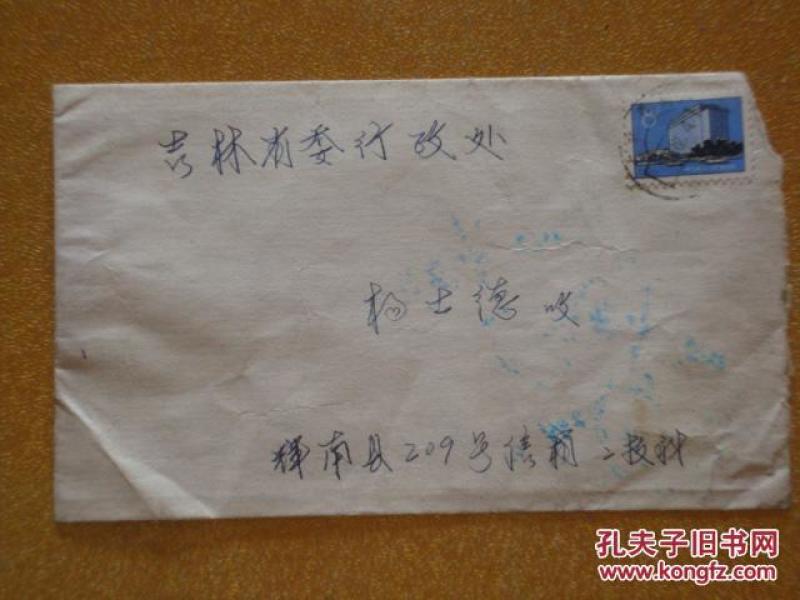 吉林省委行政处
8
杨士德收
辉南县209号信箱二技科
孔夫子旧书网
www.kongfz.com